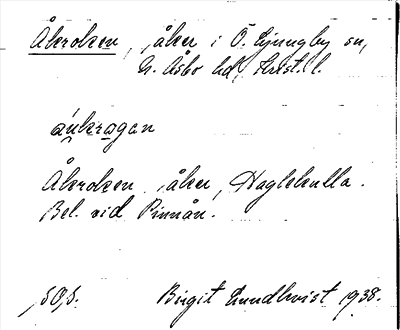 Åkroken, åker i Ö. Ljungby sn,
N. Åsbo hd, Krist. l.
Åkroken, åker, Haglekulla.
Bel. vid Pinnån.
Birgit Lundkvist 1938.